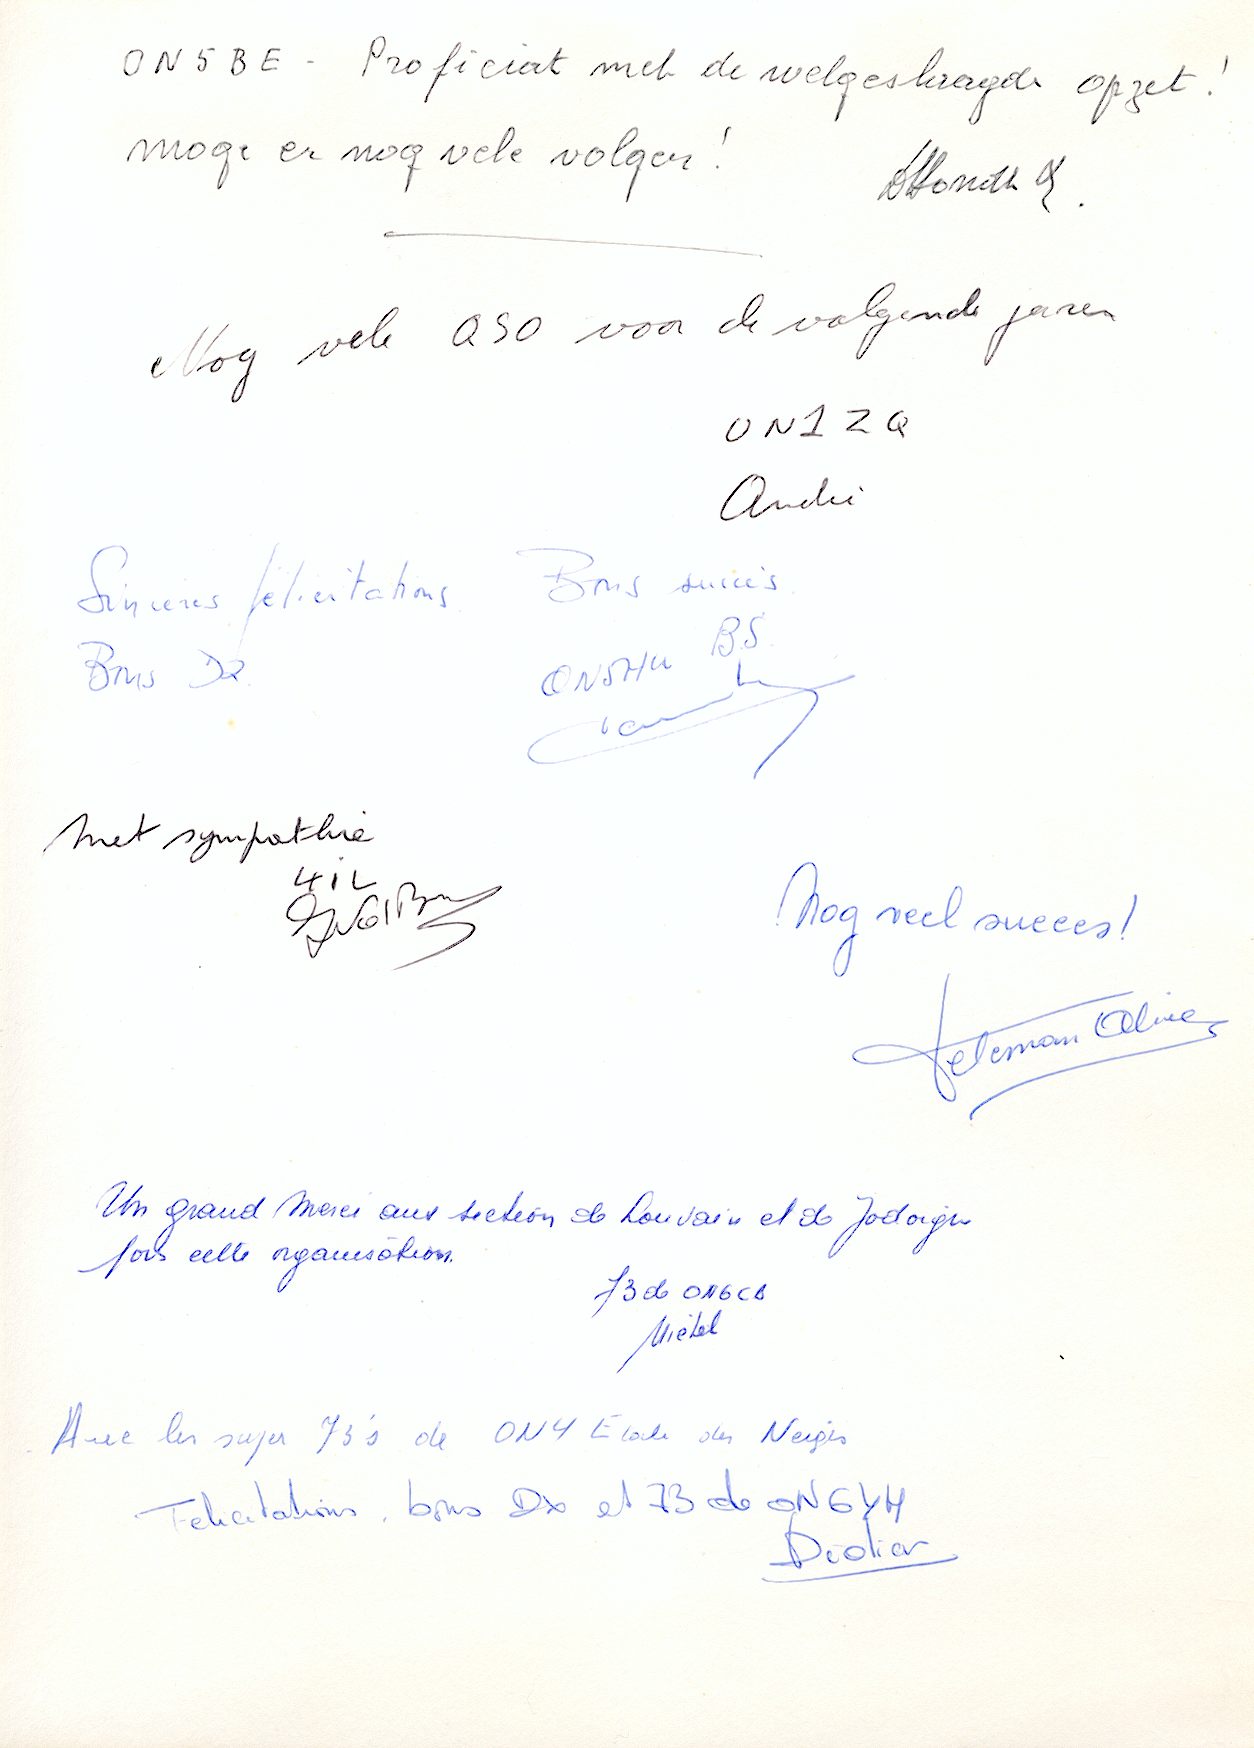 ON5BE - Proficiat met de welgeslaagde opzet!
moge er nog vele volgen!
Nog vele QSO voor de volgende jaren
ON1ZQ
André
Sincères félicitations Bons succès
Bons DX
B.S.
Met sympathie
4iL
Nog veel succes!
Teleman Olivier
Un grand Merci aux section de Louvain et de Jodoigne
pour cette organisation.
73 de ON6CB
Michel
Avec les super 73's de ON4 Etoile des Neiges
Felicitations, bons Dx et 73 de ON6YH
Didier